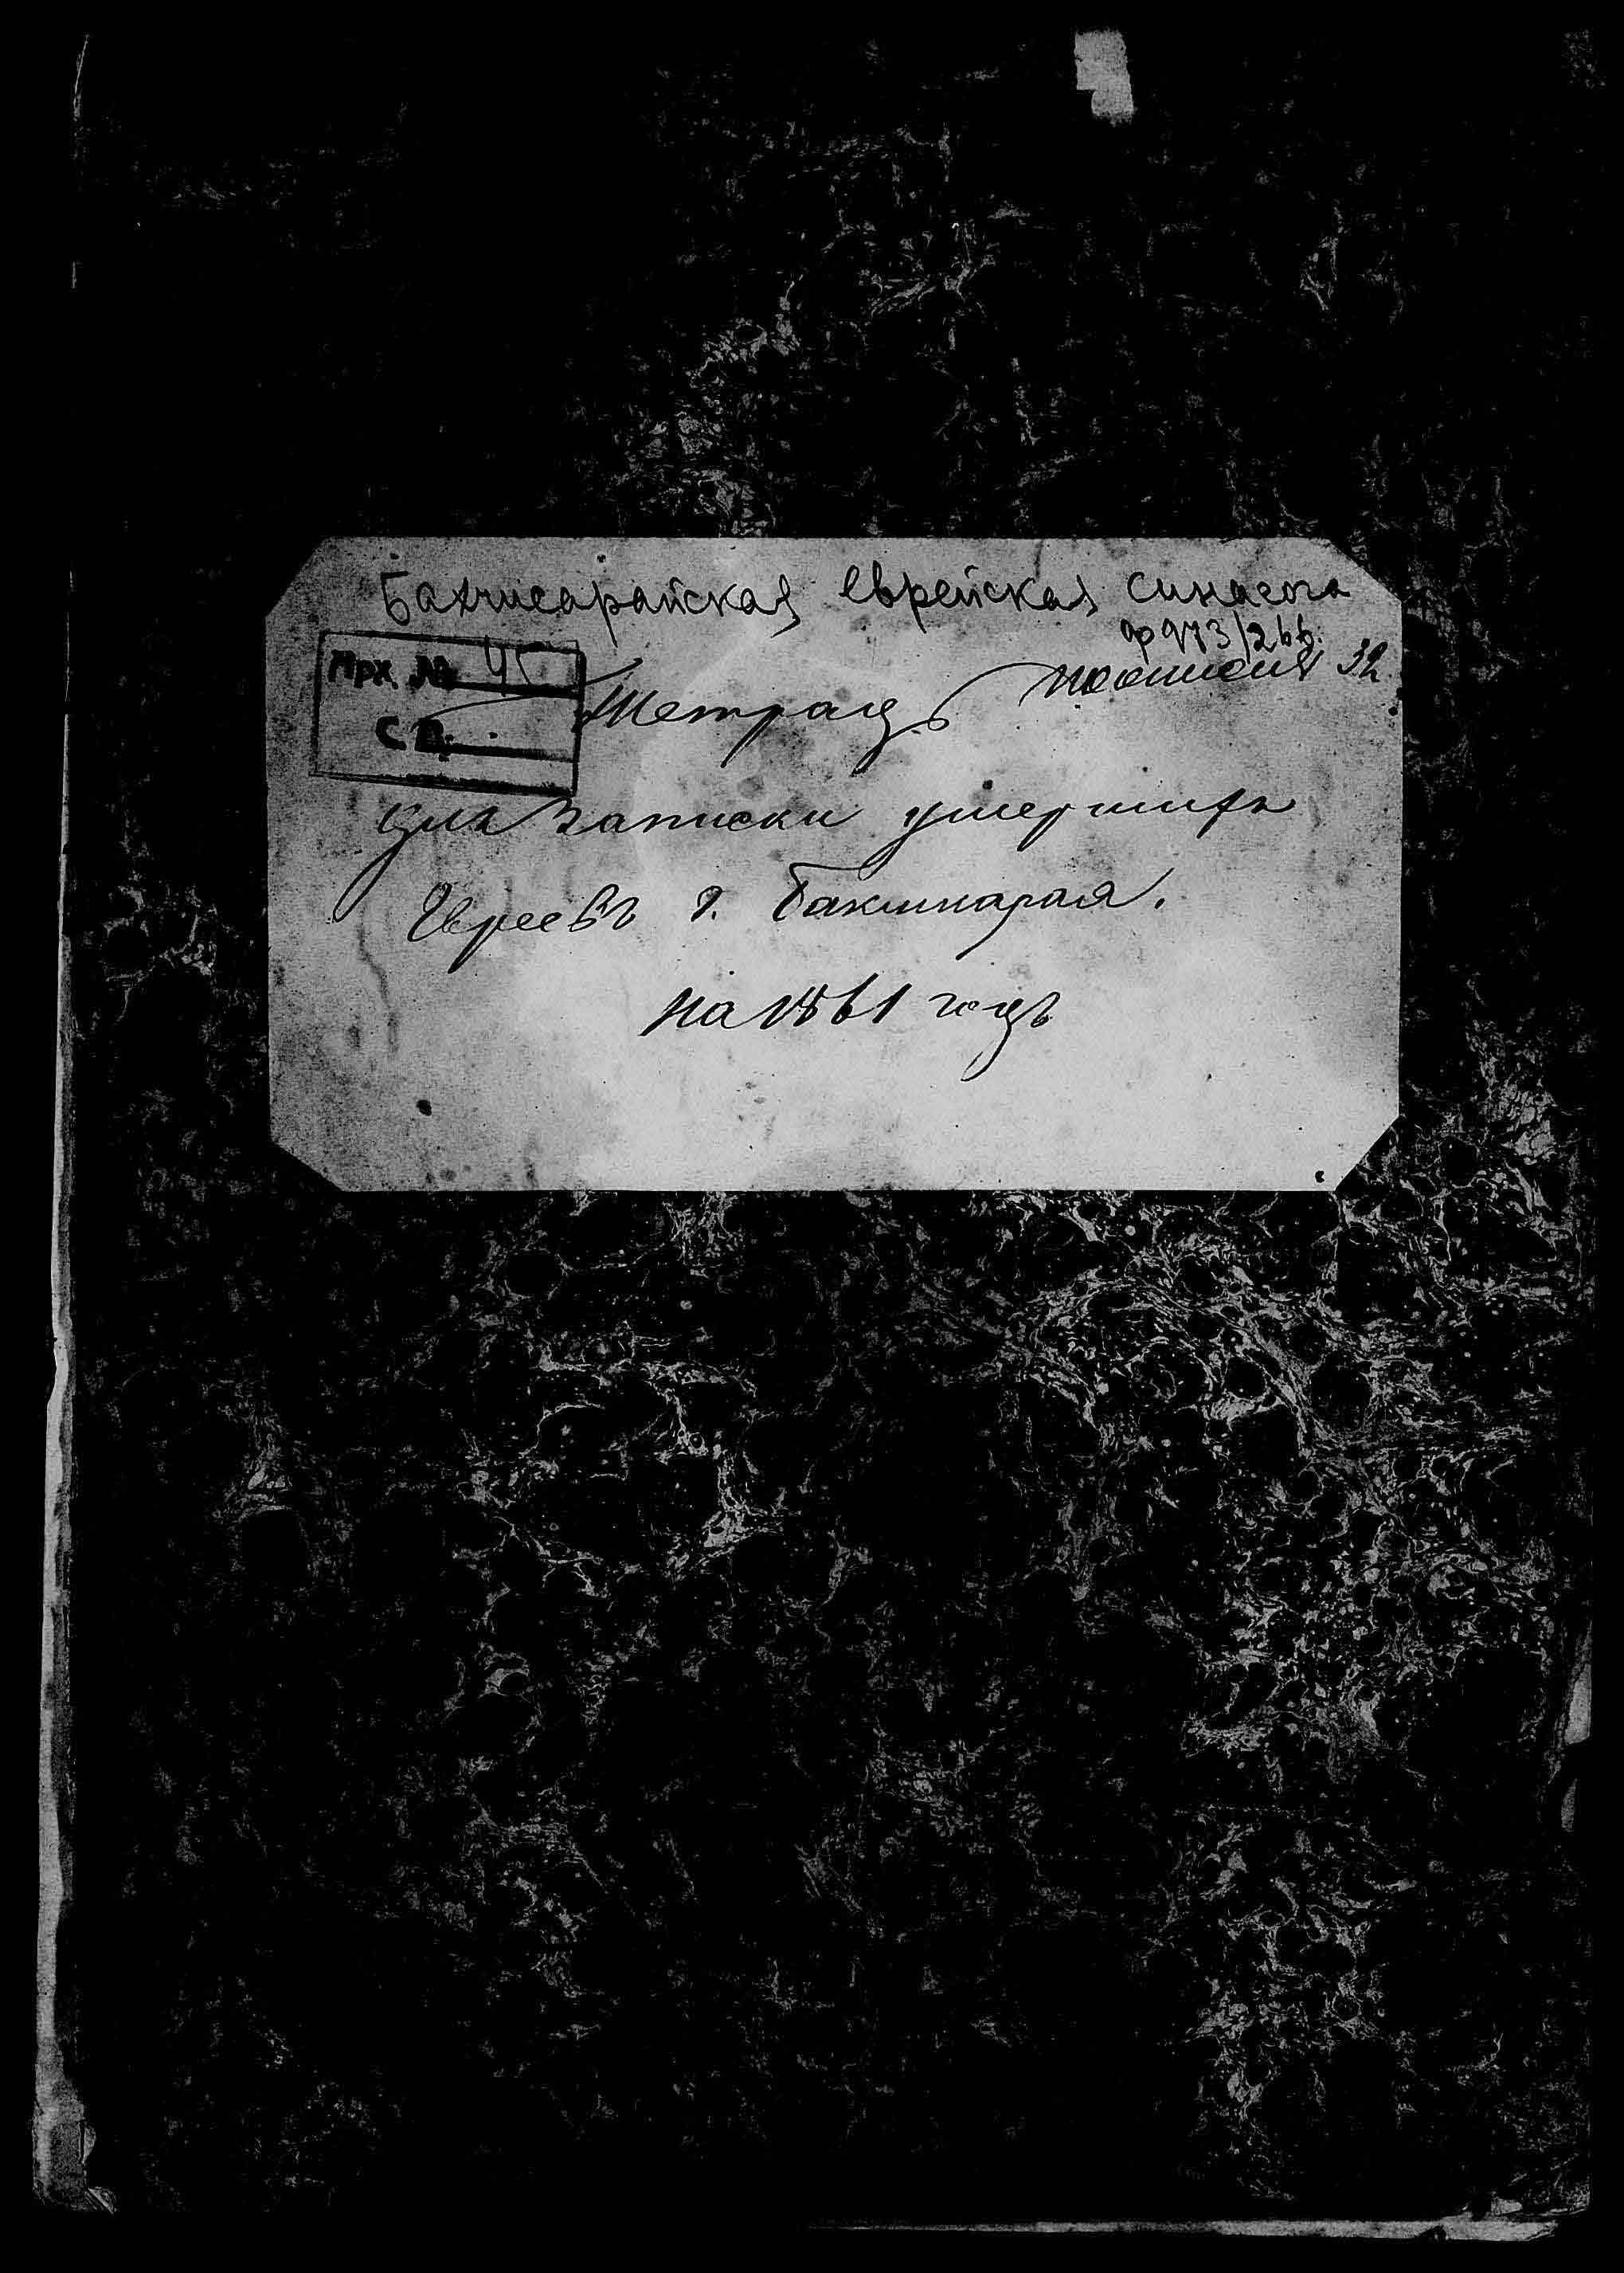 Бахчисарайская еврейская синагога
ф 973/266.
Арх. № 45
С.В.
Тетрадь
32
для Записки умершихъ
Евреевъ г. Бакчисарая.
на 1861 годъ